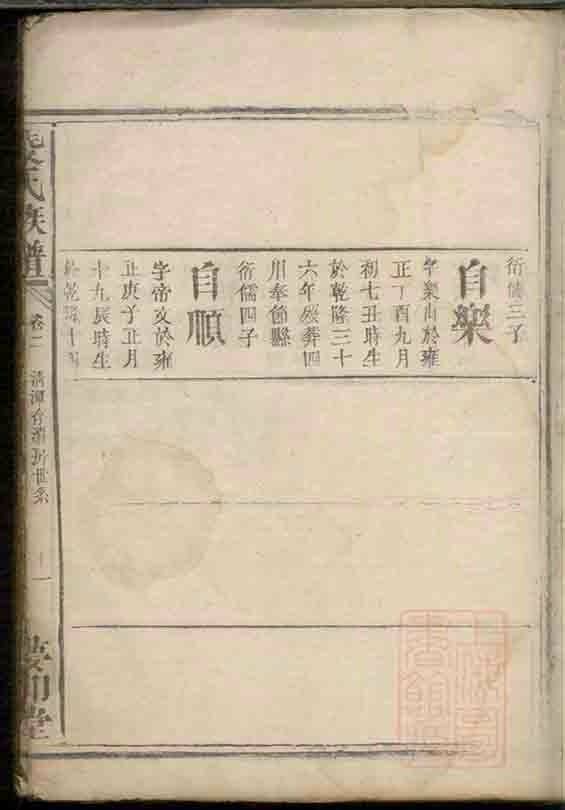 衍儒三子
自樂
字樂山於雍
正丁酉九月
初七丑時生
於乾隆三十
六年歿葬四
川奉節縣
衍儒四子
自順
字帝文於雍
正庚子正月
十九辰時生
於乾隆十四
氏族譜
卷二
十一